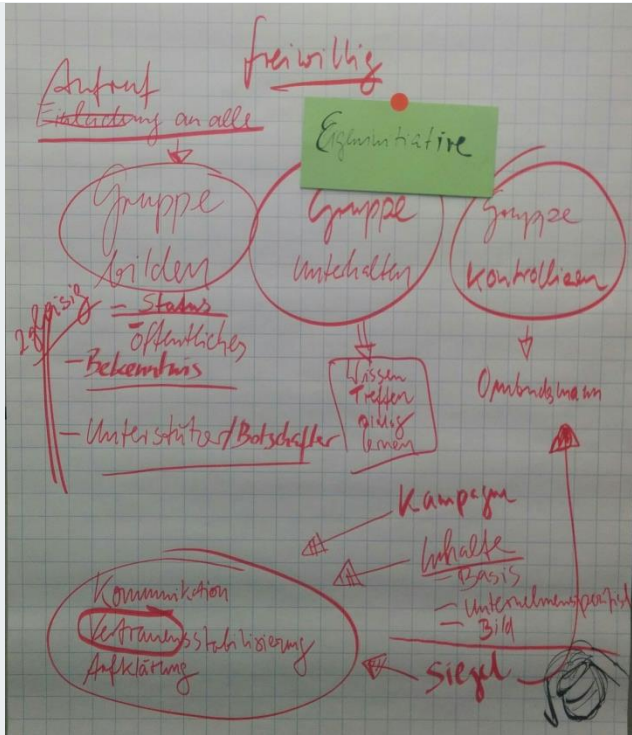 freiwillig
Aufruf
Einladung an alle
Eigeninitiative
Gruppe
bilden
Gruppe
Unterhalten
Gruppe
Kontrollieren
- Status
öffentliches
- Bekenntnis
- Unterstützer/Botschafter
Wissen
Treffen
lernen
Ombudsmann
Kampagne
Inhalte
- Basis
- Unternehmensspezifisch
- Bild
Siegel
Kommunikation
Vertrauensstabilisierung
Aufklärung